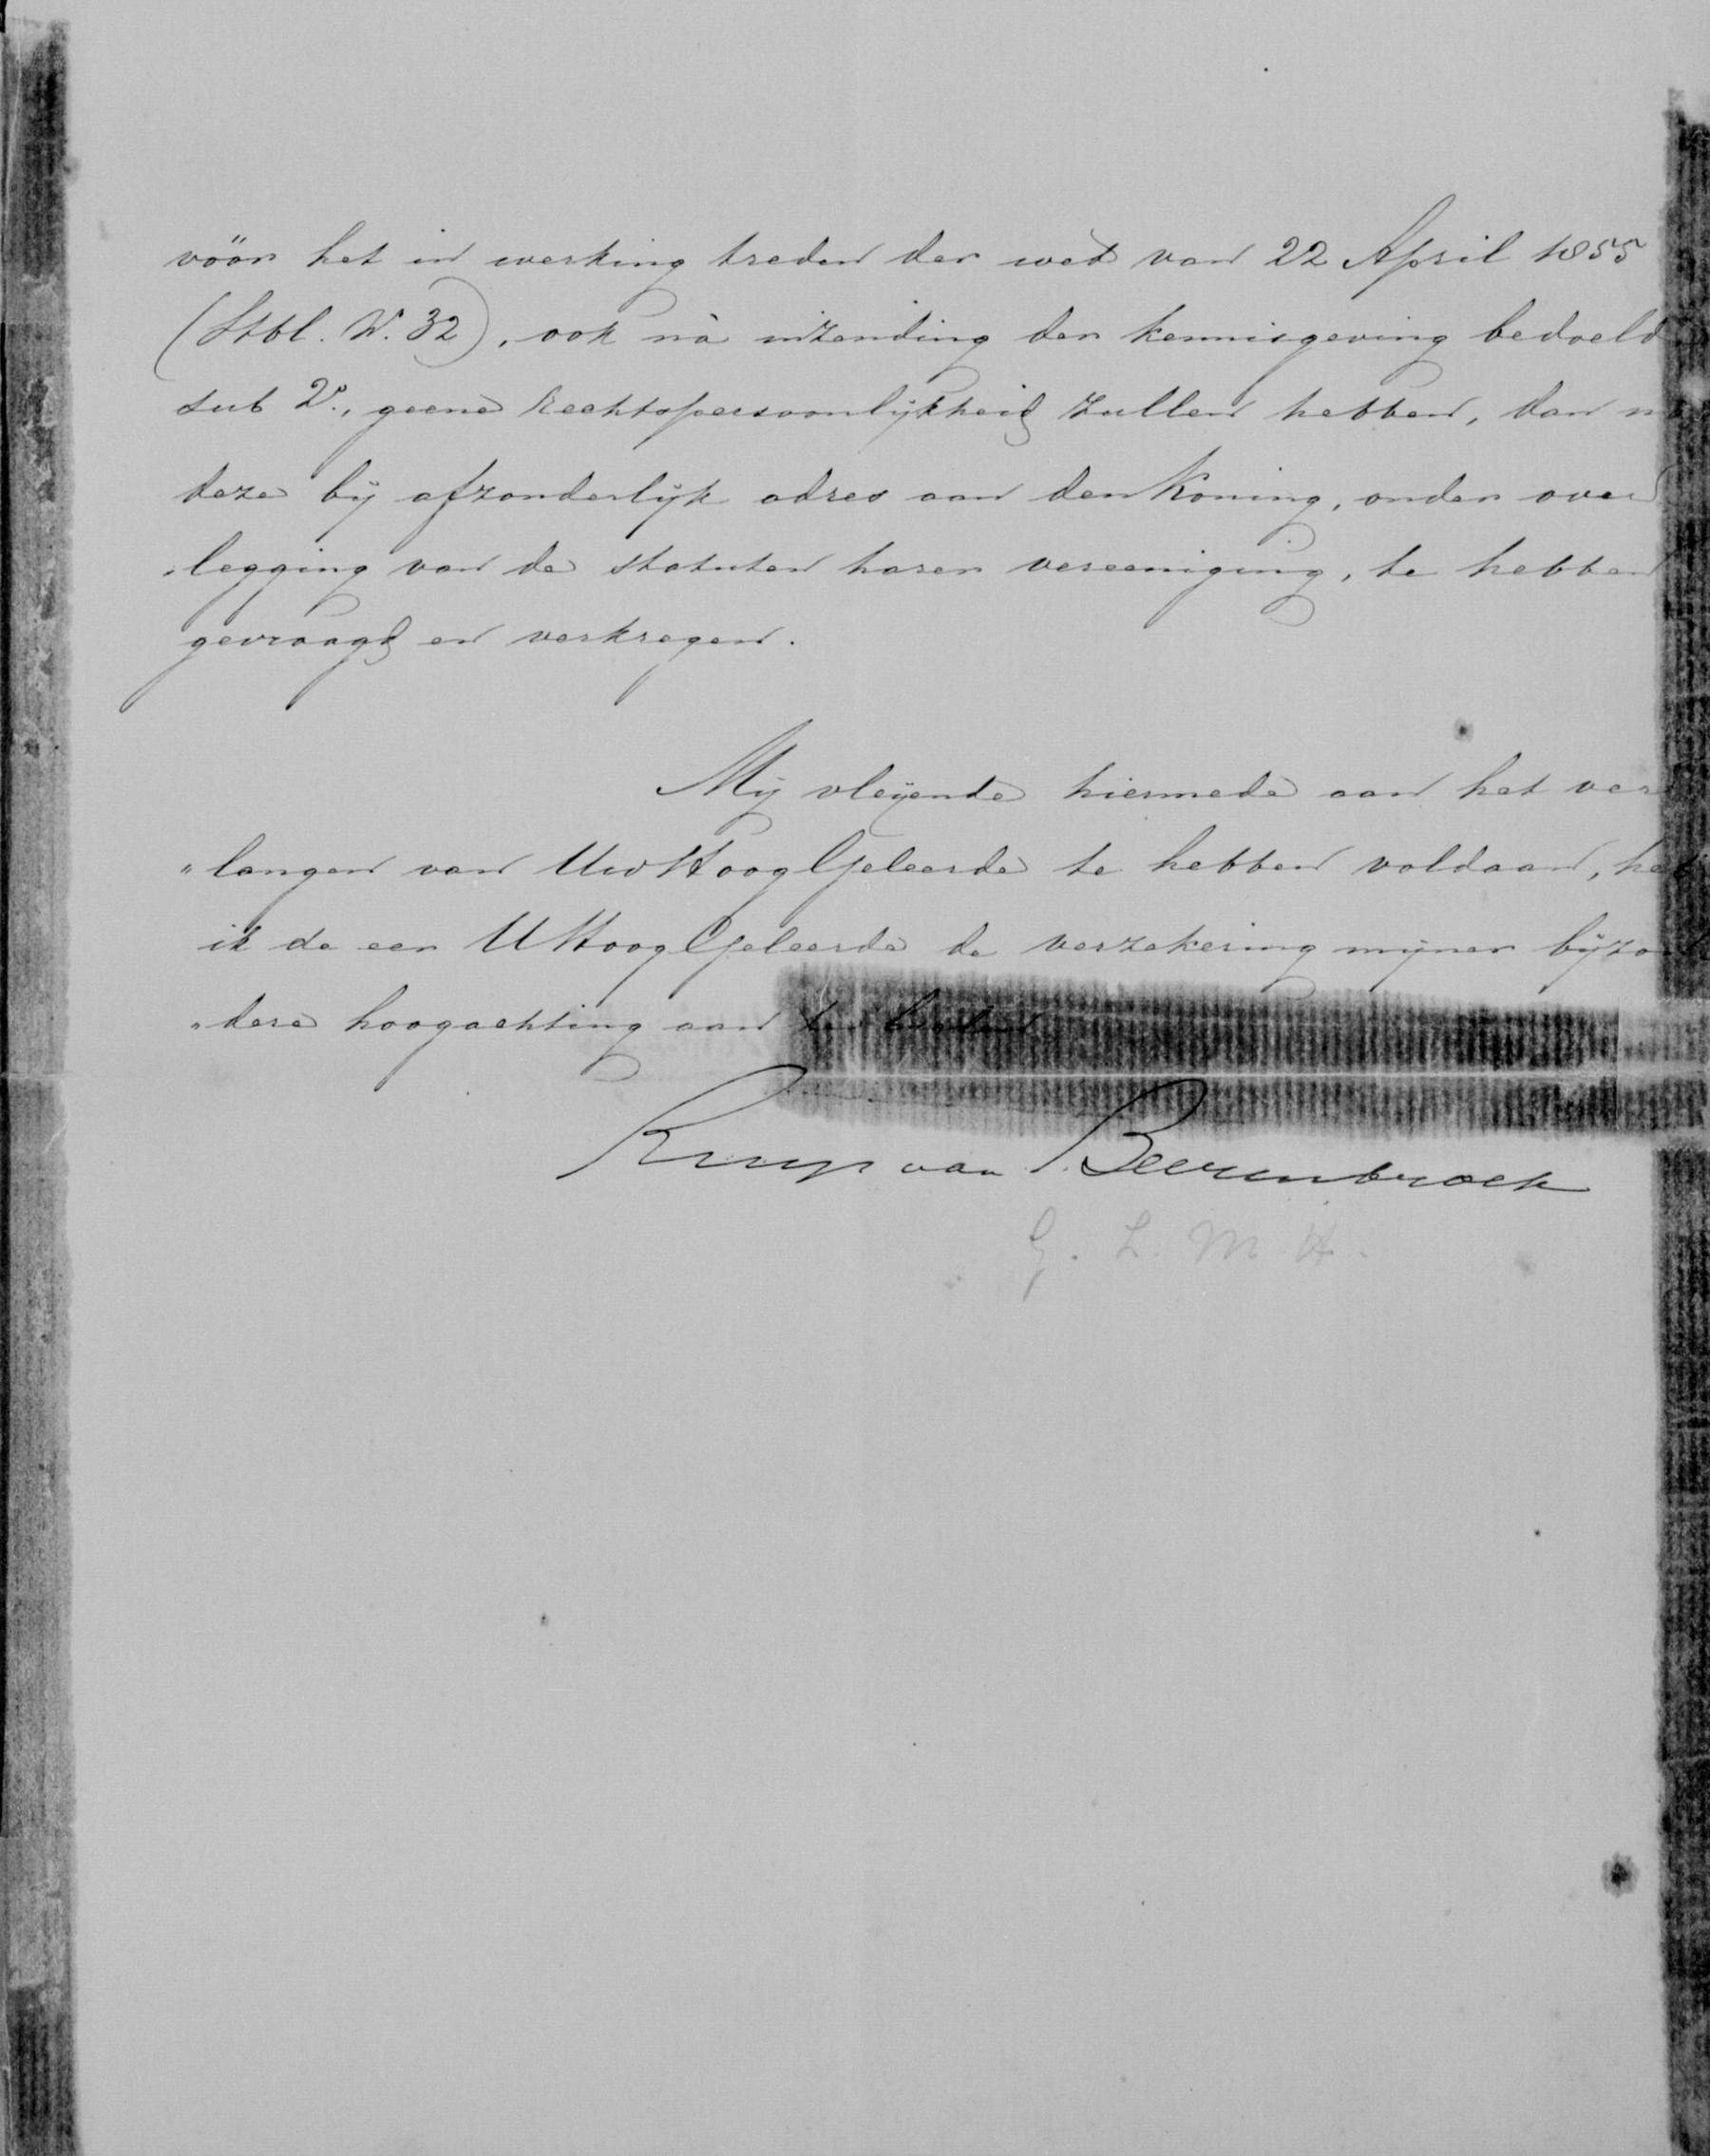 vöör het in werking treden der wet van 22 April 1855
(Stbl. N. 32), ook nà inzending der kennisgeving bedoeld
sub 2º., geene rechtspersoonlijkheid zullen hebben, dan na
deze bij afzonderlijk adres aan den Koning, onder over
„legging van de statuten harer vereeniging, te hebben
gevraagd en verkregen.
Mij vleijende hiermede aan het ver
„langen van UwHoogGeleerde te hebben voldaan, heb
ik de eer UHoogGeleerde de verzekering mijner bijzon
„dere hoogachting aan te bieden
Ruys van Beerenbroek
G. L. M. H.